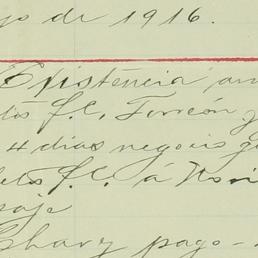 yo de 1916.
Existencia an
tos f.c. Torreón y
4 dias negocio g
leto f.c. á Mon
saje
Chavz pago -